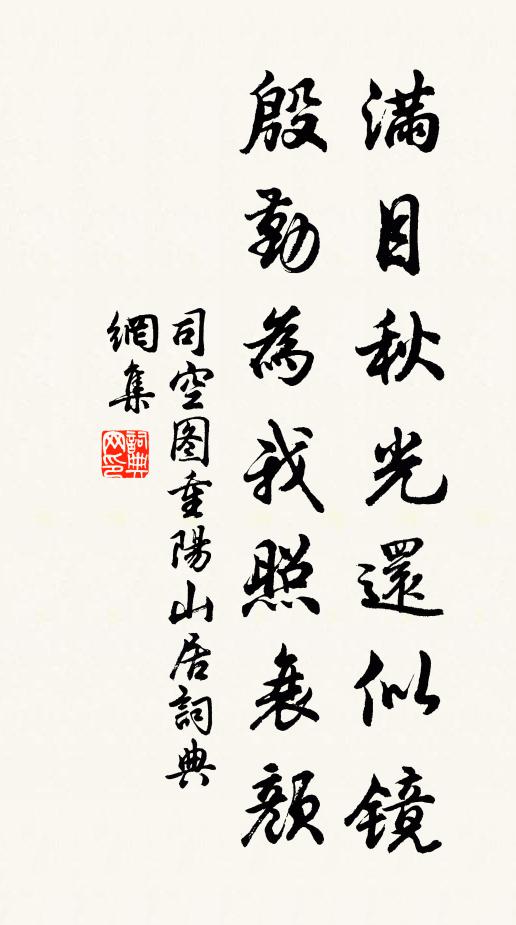 滿目秋光還似鏡
殷勤為我照衰顏
司空图重陽山居詞典
網集
詞典网印